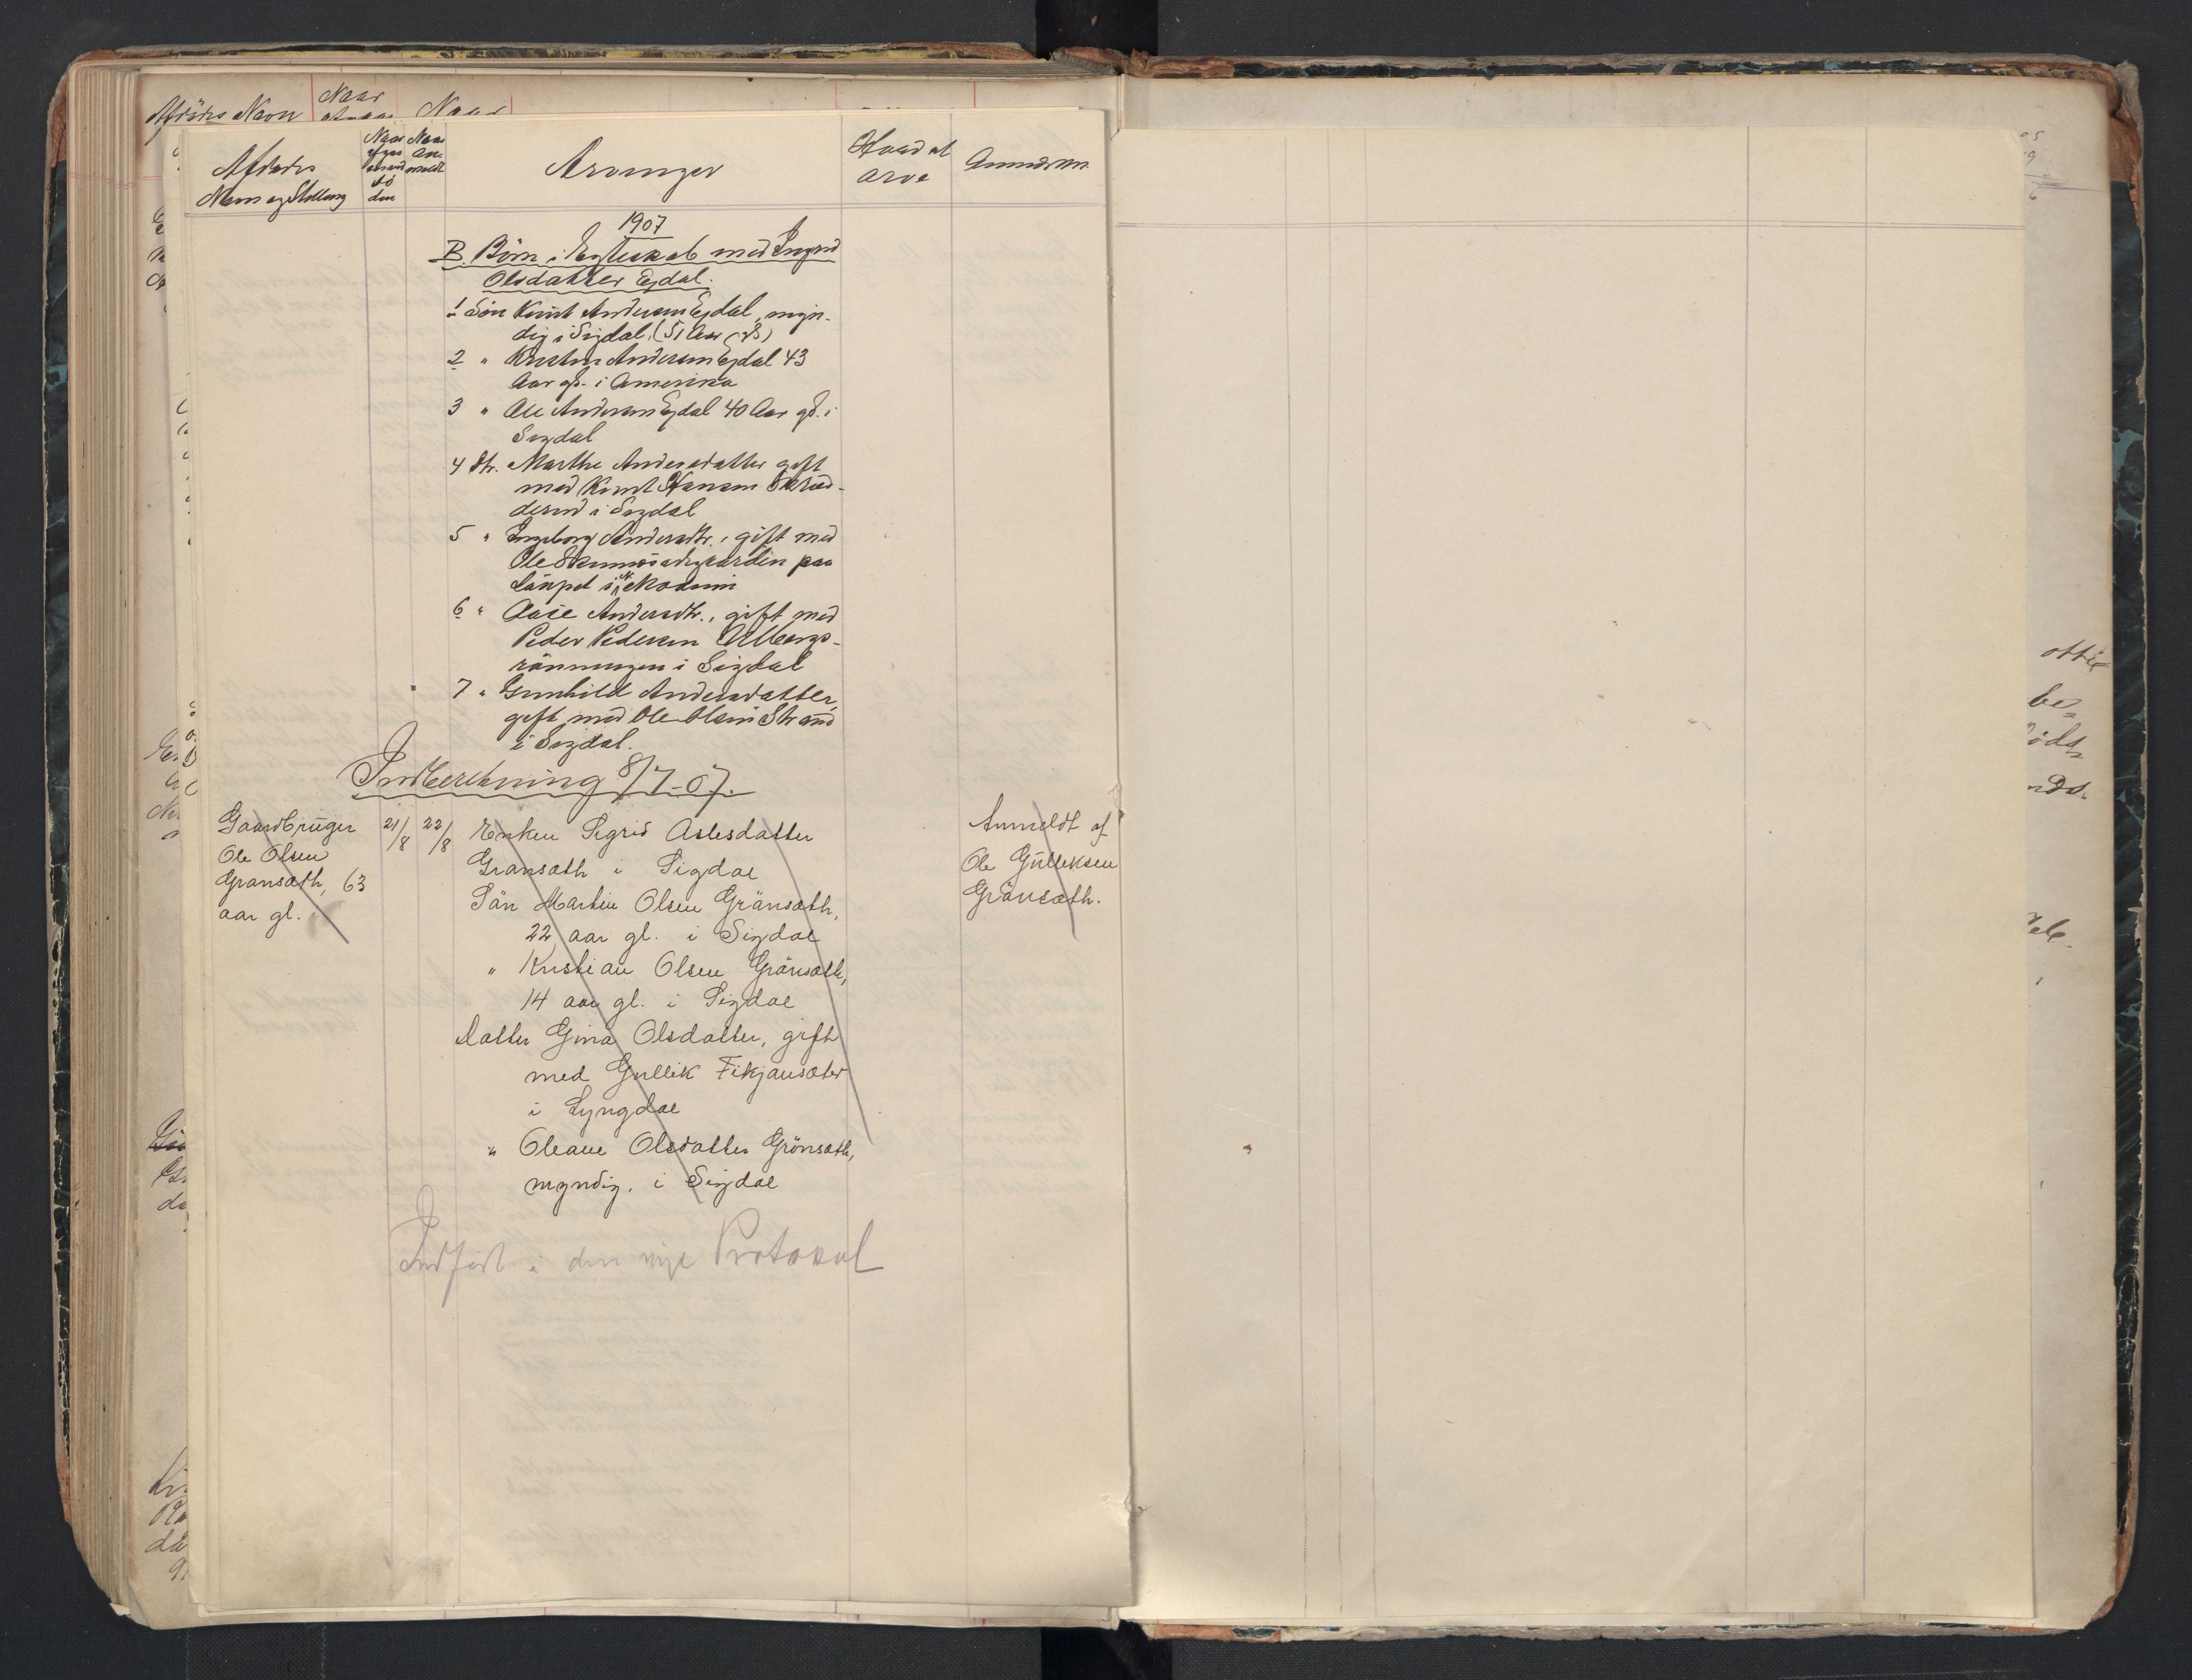 Afdødes
Navn og Stilling
Naar
Naar
An-
meldt
Arvinger
Hvad at
arve
Anmærkn.
1907
B. Børn i Egteskab med Ingrid
Olsdatter Ejdal.
1 Søn Knut Andersen Ejdal, myn-
dig i Sigdal (51 Aar gl)
2 " Kristen Andersen Ejdal 43
Aar gl. i Amerika
3 " Ole Andersen Ejdal 40 Aar gl. i
Sigdal
4 Dtr. Marthe Andersdatter gift
med Knut Hansen
i Sigdal
5 " Ingeborg Andersdtr., gift med
Ole paa
i N. Modum
6 " Aase Andersdtr., gift med
Peder Pedersen Ulbergs-
rönningen i Sigdal
7 " Gunhild Andersdatter,
gift med Ole Olsen Strand
i Sigdal.
Indberetning 8/7-07.
Gaardbruger
Ole Olsen
Grønsæth, 63
aar gl.
21/8 22/8
Enken Sigrid Aslesdatter
Grønsæth i Sigdal
Søn Martin Olsen Grønsæth,
22 aar gl. i Sigdal
" Kristian Olsen Grønsæth,
14 aar gl. i Sigdal
Datter Gina Olsdatter, gift
med Gullik Fikjansæter
i Lyngdal
" Oleane Olsdatter Grönsæth,
myndig, i Sigdal
Anmeldt af
Ole Gulleksen
Grønsæth.
Indført i den nye Protokol